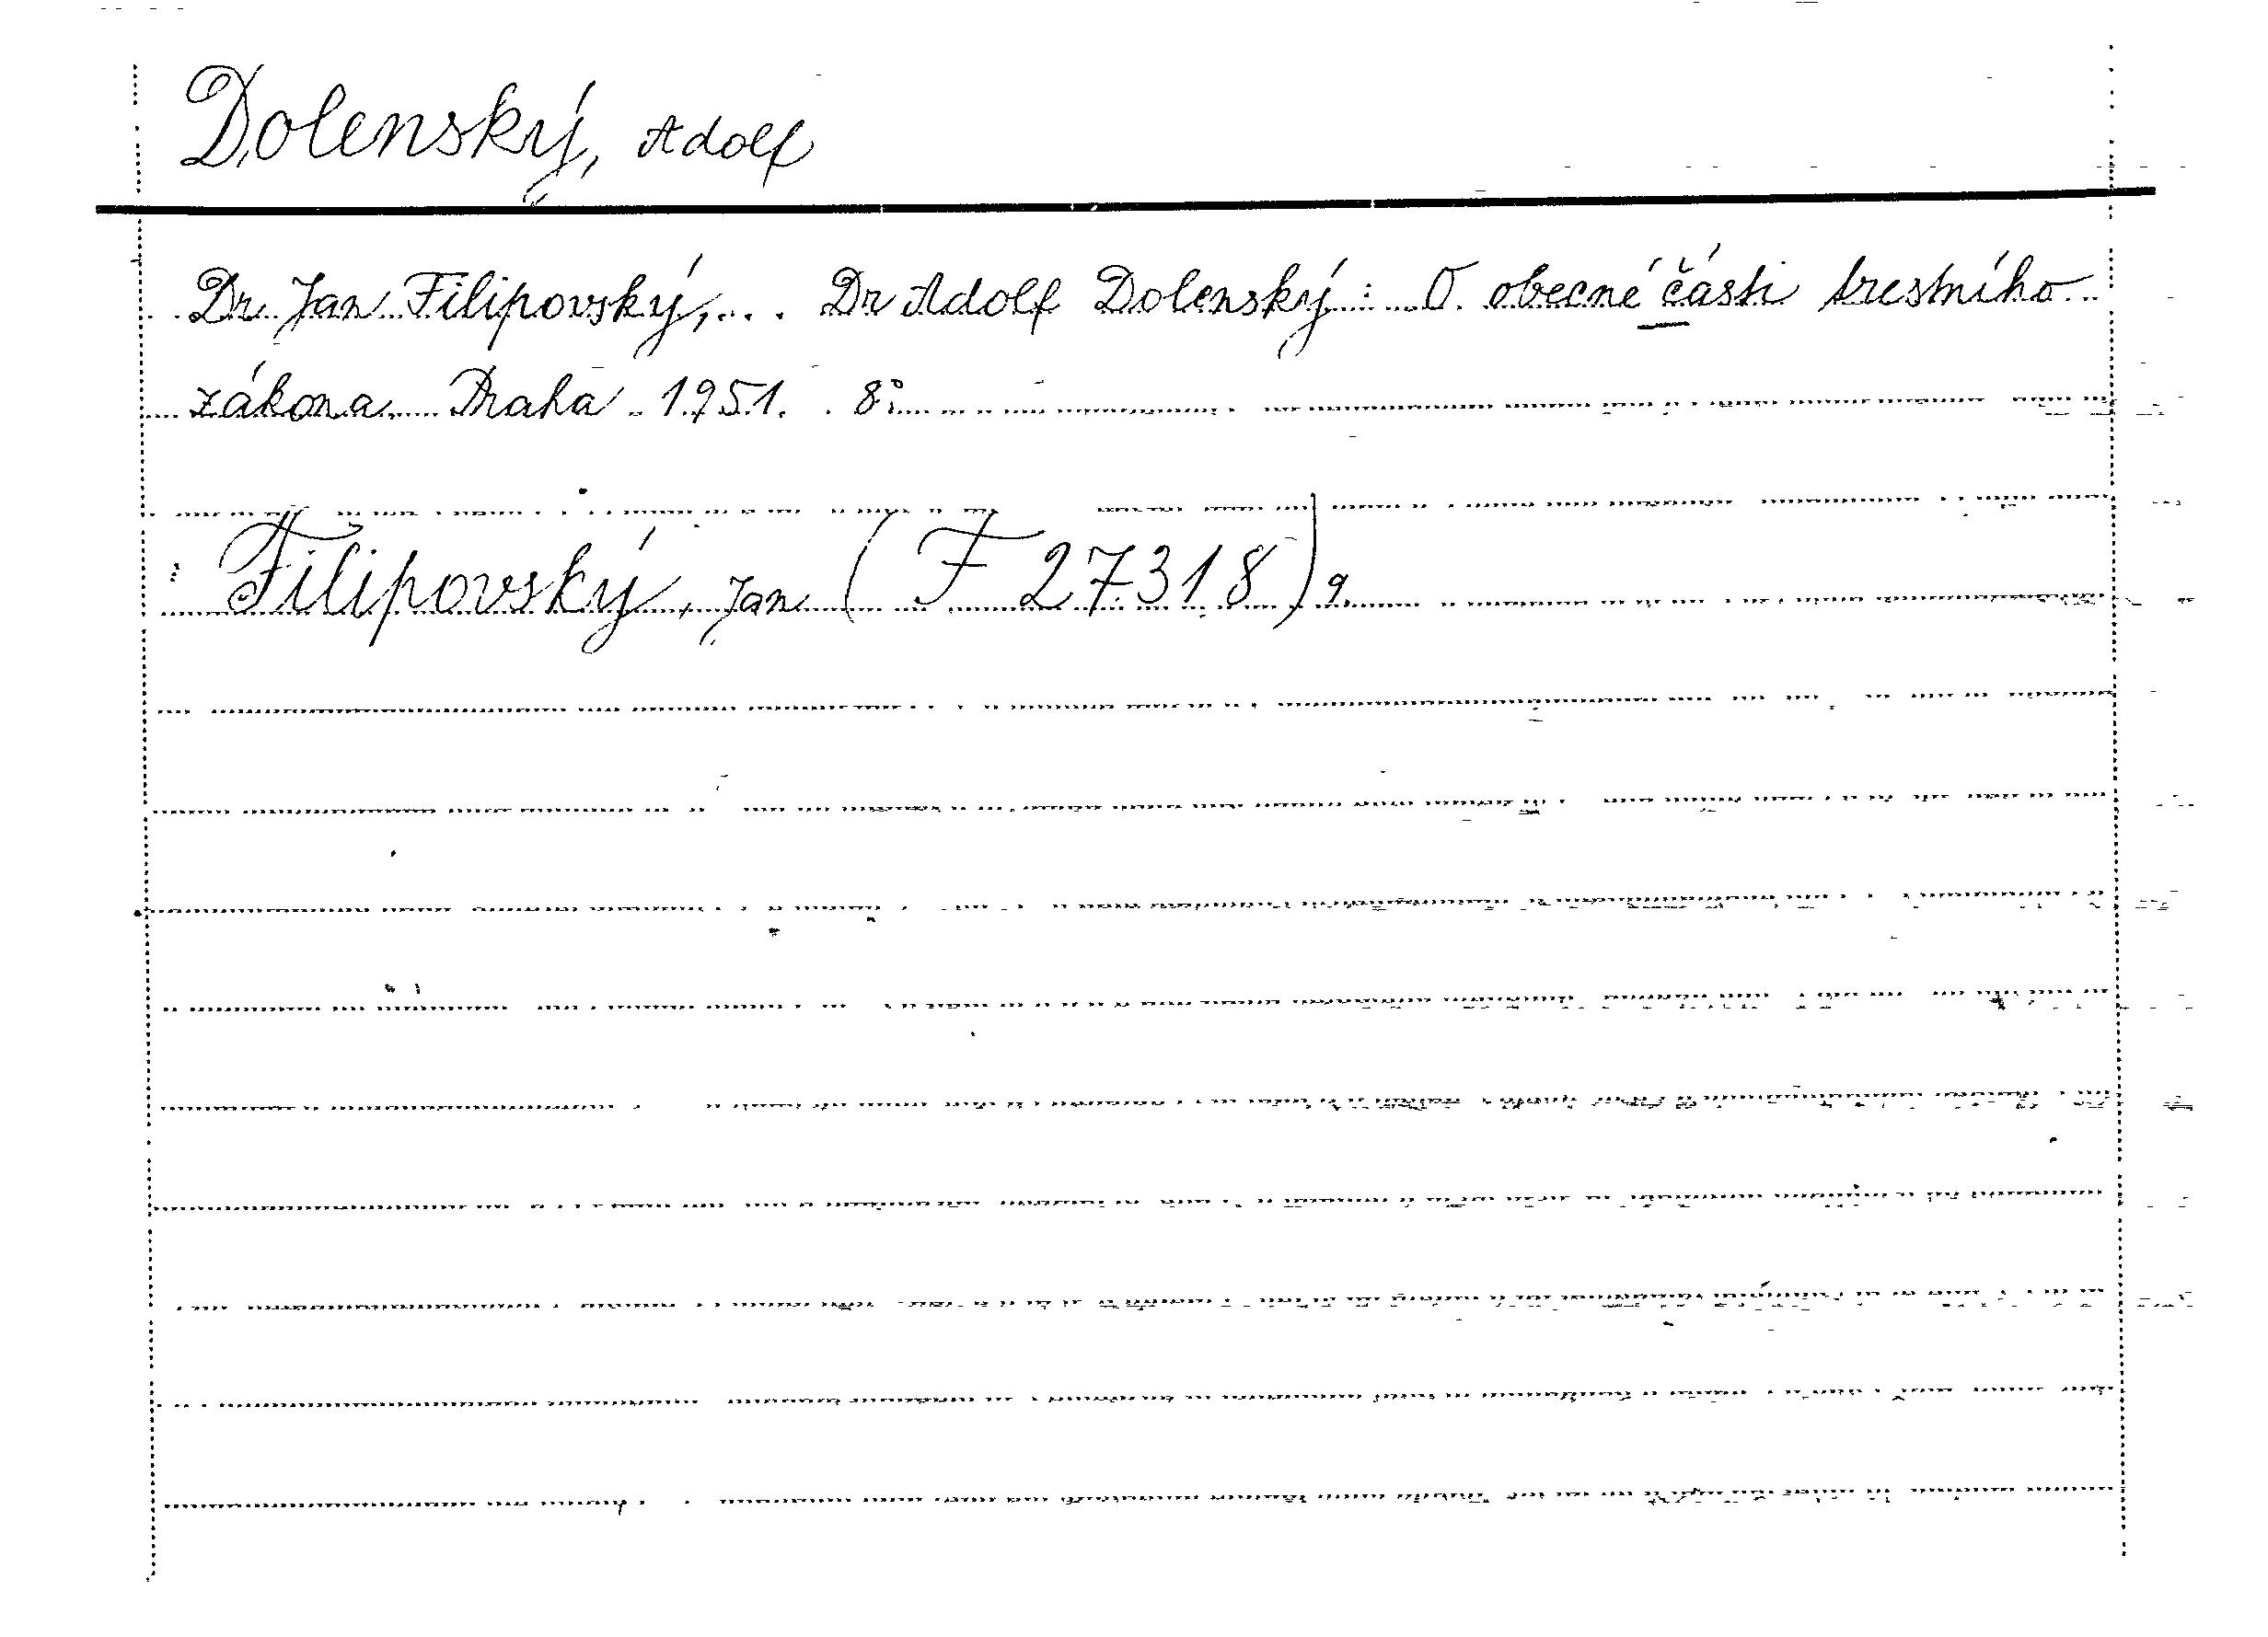 Dolenský, Adolf
Dr. Jan Filipovský, ... Dr Adolf Dolenský: O obecné části trestního
zákona. Praha 1951. 8°
Filipovský, Jan (F 27318) 9.